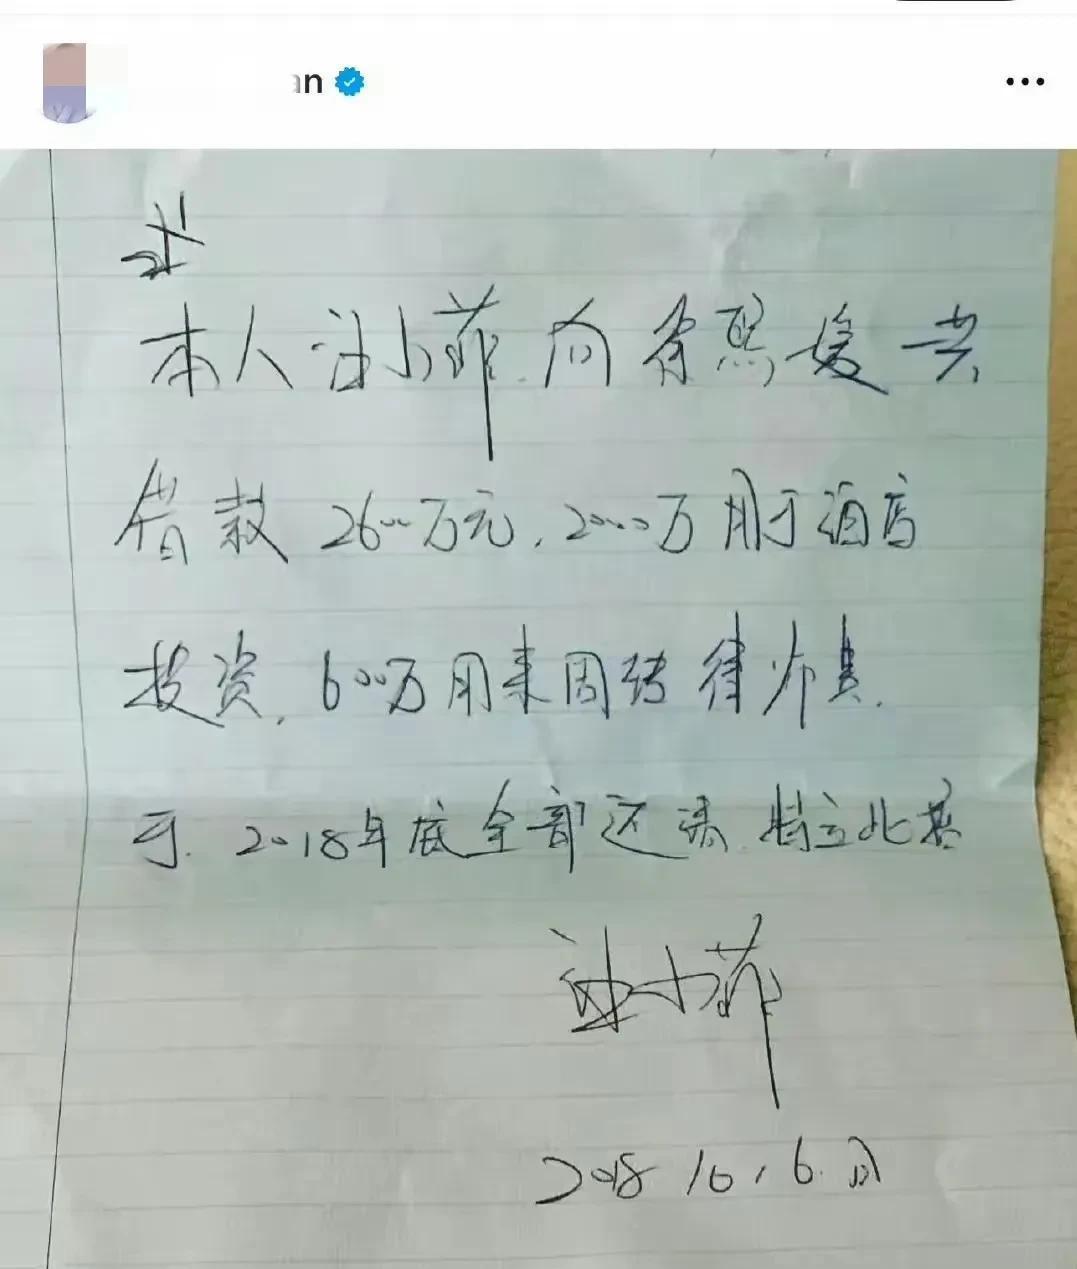 an
本人汪小菲向徐熙媛共
借款2600万元,2000万用于酒店
投资,600万用来周转律师费.
于.2018年底全部还清.特立此据
汪小菲
2018 10,6.